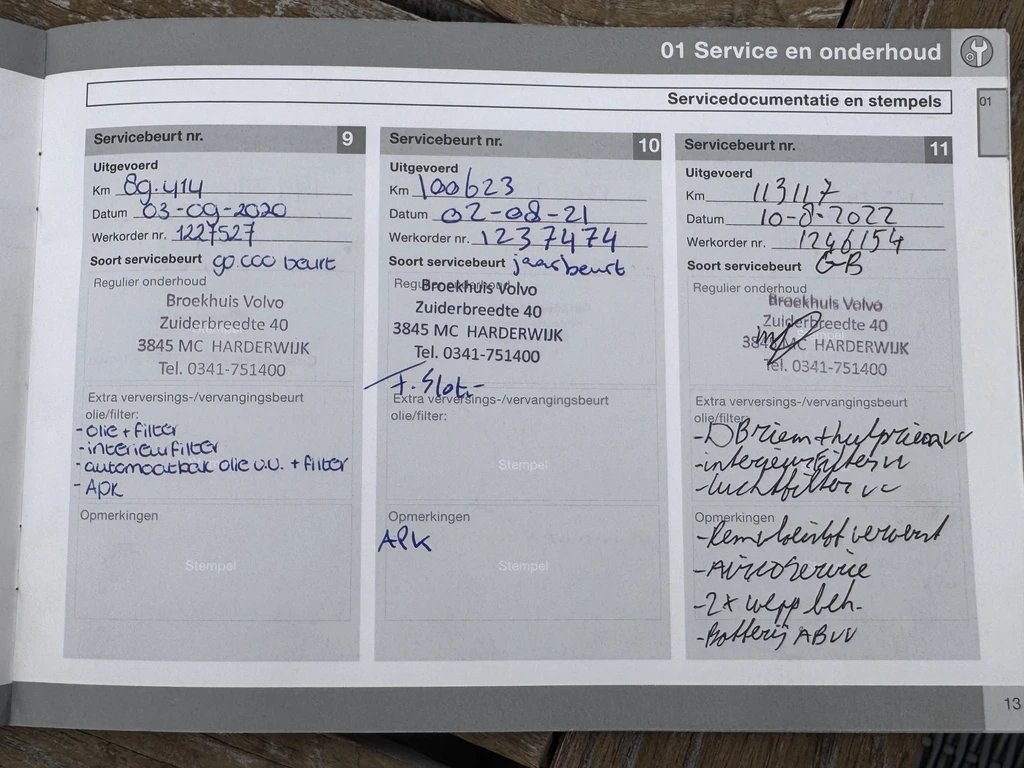 01 Service en onderhoud
01
Servicedocumentatie en stempels
Servicebeurt nr. 9
Uitgevoerd
Km 89.414
Datum 03-09-2020
Werkorder nr. 1227527
Soort servicebeurt 90.000 beurt
Regulier onderhoud
Broekhuis Volvo
Zuiderbreedte 40
3845 MC HARDERWIJK
Tel. 0341-751400
Extra verversings-/vervangingsbeurt
olie/filter:
- olie + filter
- interieurfilter
- automaatbak olie v.v. + filter
- APK
Opmerkingen
Stempel
Servicebeurt nr. 10
Uitgevoerd
Km 100623
Datum 02-08-21
Werkorder nr. 1237474
Soort servicebeurt jaarbeurt
Regulier onderhoud
Broekhuis Volvo
Zuiderbreedte 40
3845 MC HARDERWIJK
Tel. 0341-751400
Extra verversings-/vervangingsbeurt
olie/filter:
Stempel
Opmerkingen
APK
Stempel
Servicebeurt nr. 11
Uitgevoerd
Km 113117
Datum 10-8-2022
Werkorder nr. 1246154
Soort servicebeurt GB
Regulier onderhoud
Broekhuis Volvo
Zuiderbreedte 40
3845 MC HARDERWIJK
Tel. 0341-751400
Extra verversings-/vervangingsbeurt
olie/filter:
- interieurfilter vv
- luchtfilter vv
Opmerkingen
- Remvloeistof ververst
- Aircoservice
- 2x wepp beh.
- Batterij AB vv
13